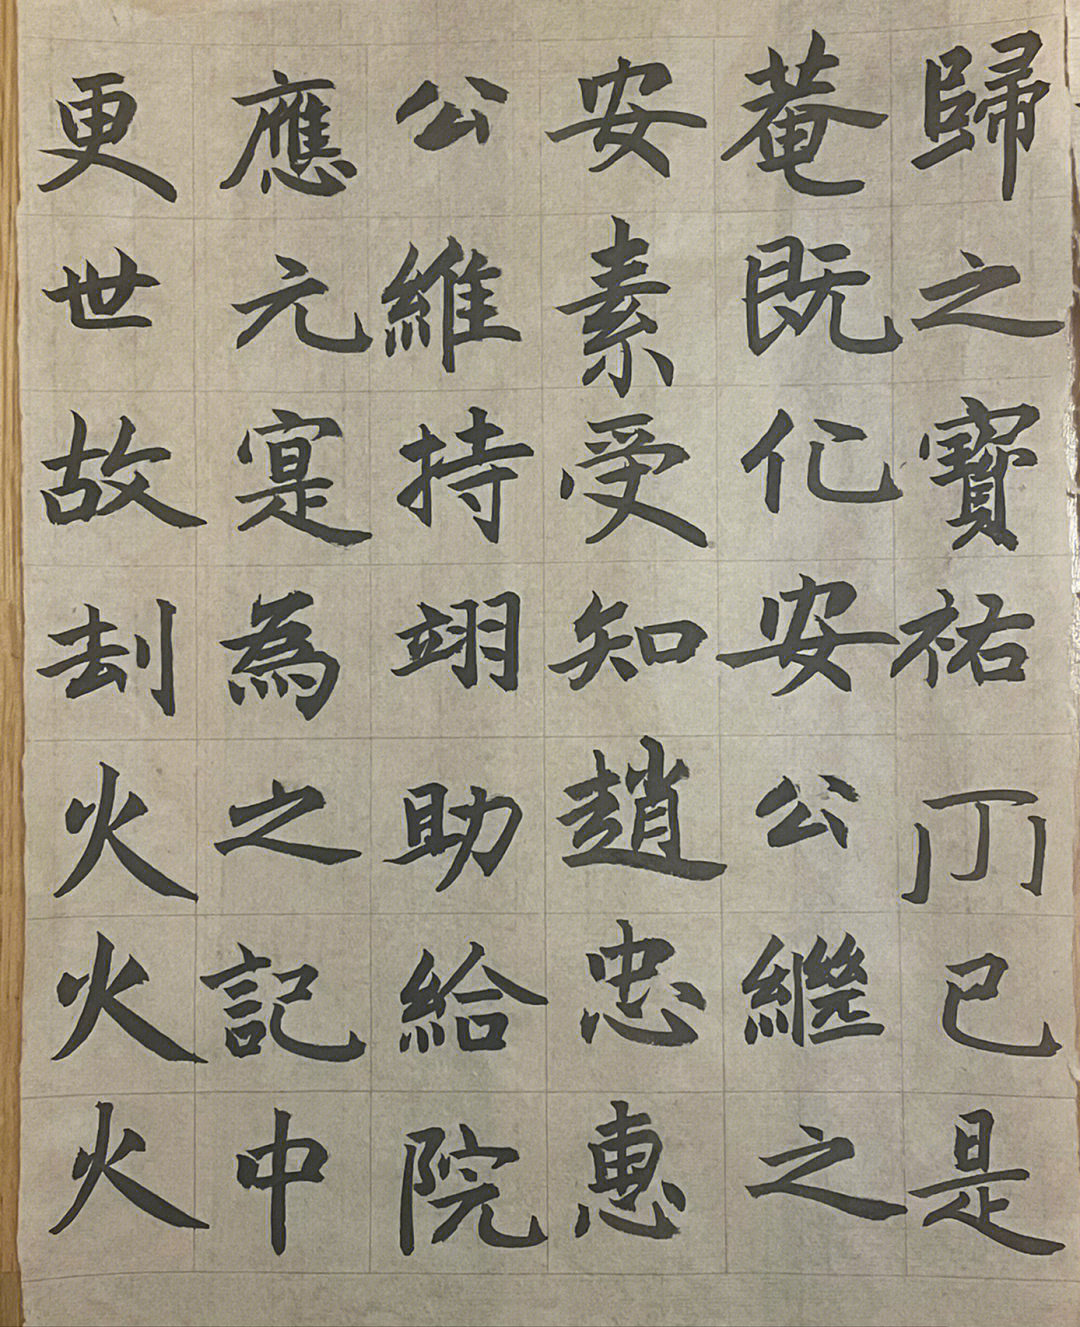 歸之寶祐丁巳是
菴既化安公繼之
安素受知趙忠惠
公維持翊助給院
應元寔為之記中
更世故刦火火火